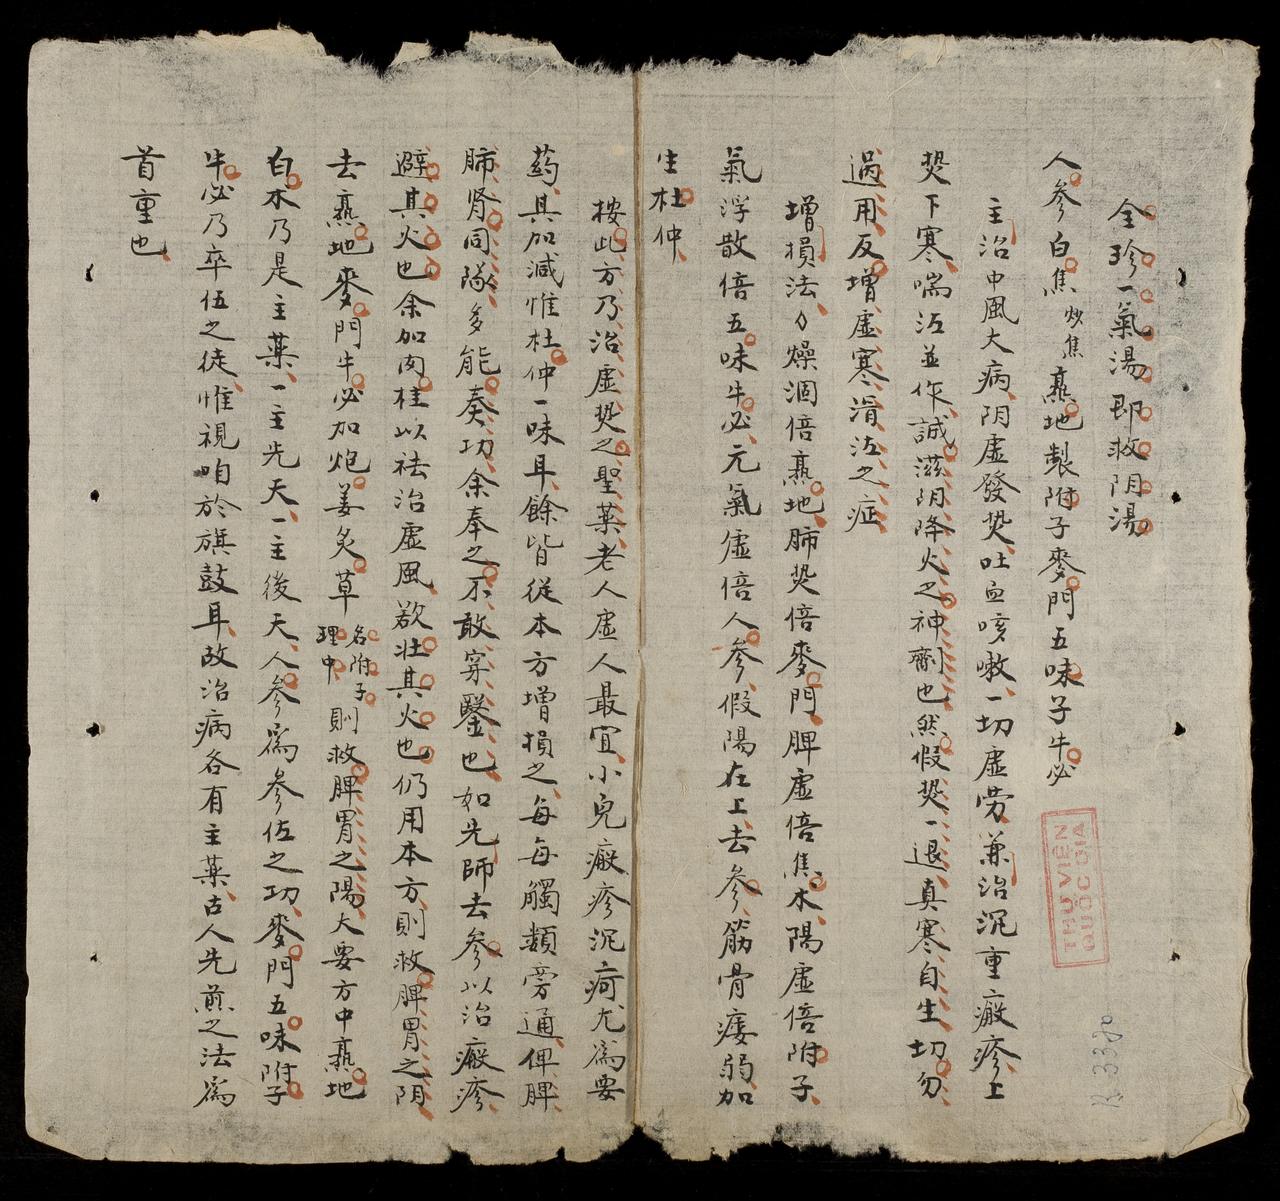 全珍一氣湯即救阴湯
人參白焦炒焦熹地製附子麥門五味子牛必
主治中風大病阴虛發焚吐血咳嗽一切虛劳兼治沉重癍疹上
焚下寒喘泻並作誠滋阴降火之神劑也然假焚一退真寒自生切勿
過用反增虛寒滑泻之症
增損法々燥涸倍熹地肺焚倍麥門脾虛倍焦朮陽虛倍附子
氣浮散倍五味牛必元氣虛倍人參假陽在上去參筋骨痿弱加
生杜仲
按此方乃治虛焚之聖藥老人虛人最宜小兒癍疹沉疴尤為要
药其加減惟杜仲一味耳餘皆從本方增損之每每觸類旁通俾脾
肺肾同隊多能奏功余奉之不敢穿鑿也如先師去參以治癍疹
避其火也余加肉桂以祛治虛風欲壯其火也仍用本方則救脾胃之阴
去熹地麥門牛必加炮姜炙草名附子理中則救脾胃之陽大要方中熹地
白朮乃是主藥一主先天一主後天人參為參佐之功麥門五味附子
牛必乃卒伍之徒惟視咱於旗鼓耳故治病各有主藥古人先煎之法為
首重也
THƯ VIỆN
QUỐC GIA
R.3380